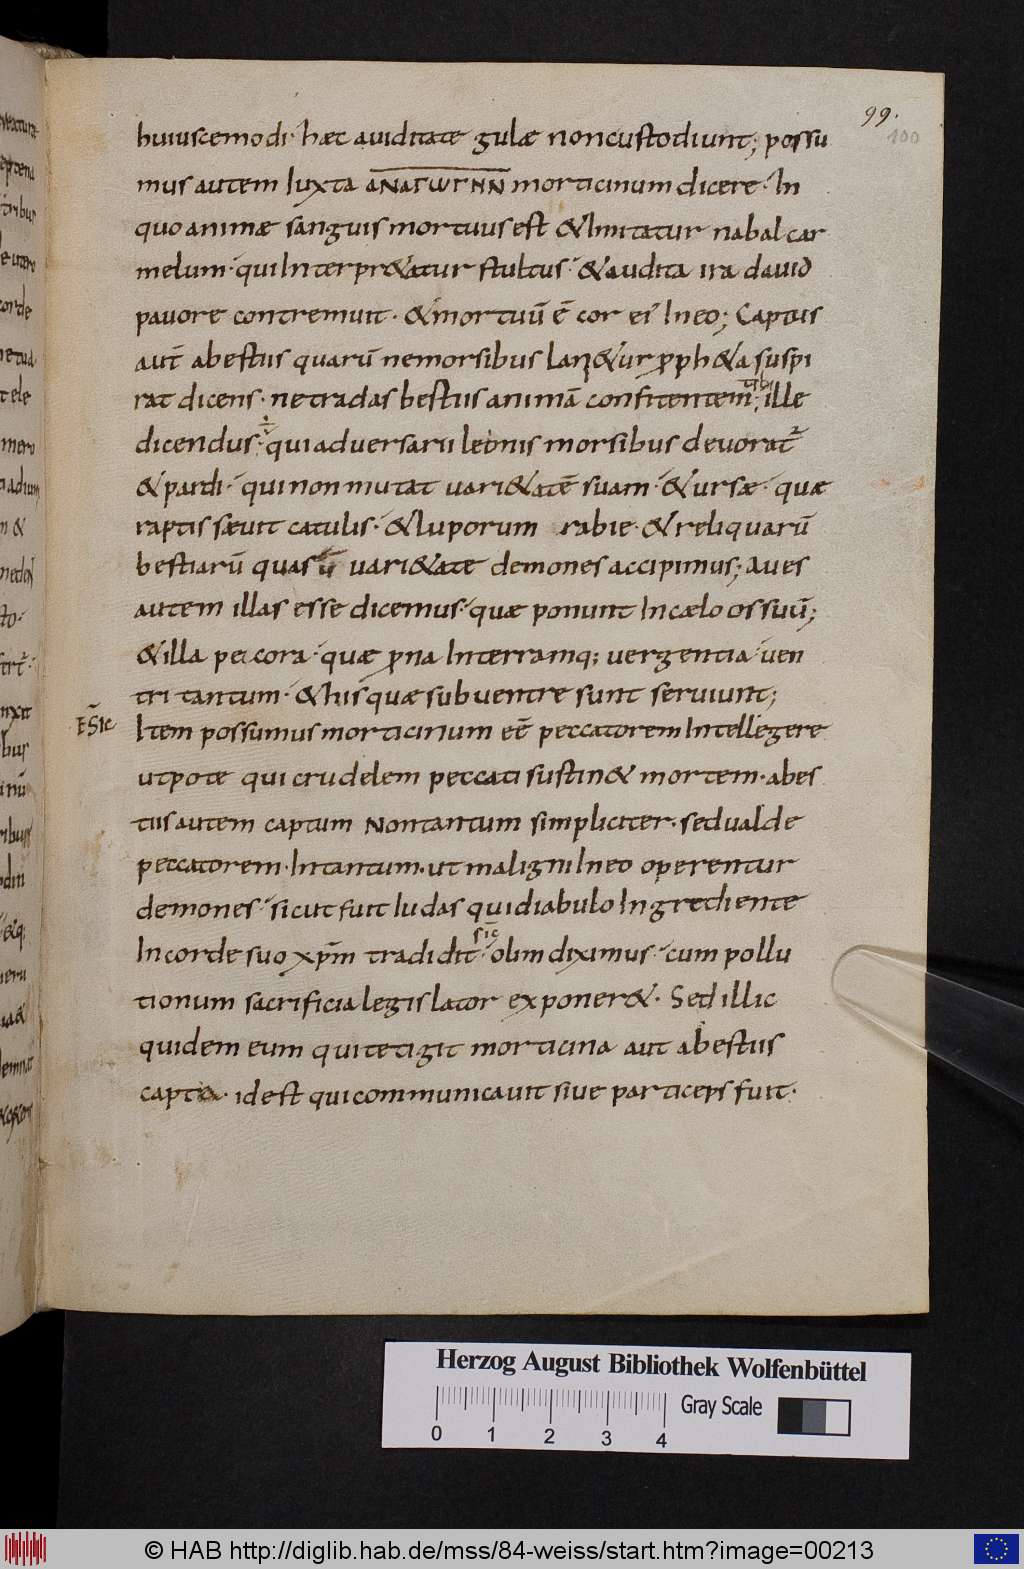 99.
100
huiuscemodi· hæc auiditate gulæ noncustodiunt; possu
mus autem Iuxta ANAΓωΓHN morticinum dicere· In
quo animæ sanguis mortuus est &Imitatur nabal car
melum· qui Interpr&atur stultus· &audita ira dauid
pauore contremuit· &mortuũ ẽ cor ei' Ineo; Captus
aut̃ abestiis quarũ nemorsibus Lani&ur pph&a suspi
rat dicens· netradas bestiis animã confitentem; ille
dicendus· qui aduersarii leonis morsibus deuorat̃
&pardi· qui non mutat uari&atẽ suam· &ursæ· quæ
raptis sæuit catulis· &luporum rabie· &reliquarũ
bestiarũ quas uari&ate demones accipimus; Aues
autem illas esse dicemus· quæ ponunt Incælo os suũ;
&illa peccora· quæ pna Interramq; uergentia uen
tri tantum· &his quæ sub uentre sunt seruiunt;
Item possumus morticinum eẽ peccatorem Intellegere
utpote qui crudelem peccati sustin& mortem· abes
tiis autem captum Nontantum simpliciter· sed ualde
peccatorem· Intantum· ut maligni Ineo operentur
demones· sicut fuit Iudas qui diabulo Ingrediente
In corde suo xpm̃ tradidit· olim diximus· cum pollu
tionum sacrificia legislator exponer&· Sed illic
quidem eum qui tetigit morticina aut abestiis
capta· idest qui communicauit siue particeps fuit·
Herzog August Bibliothek Wolfenbüttel
Gray Scale
0 1 2 3 4
© HAB http://diglib.hab.de/mss/84-weiss/start.htm?image=00213